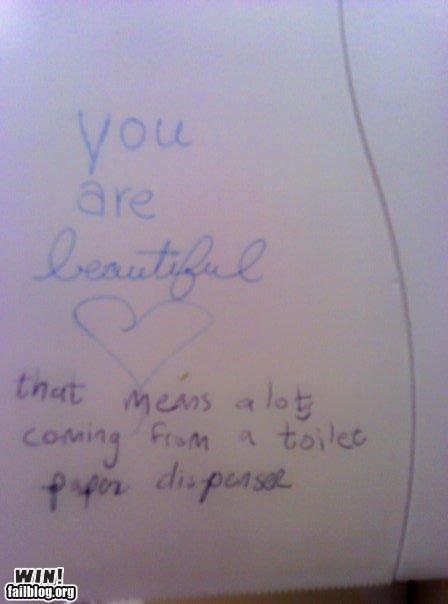 you
are
beautiful
that means a lot
coming from a toilet
paper dispenser
WIN!
failblog.org